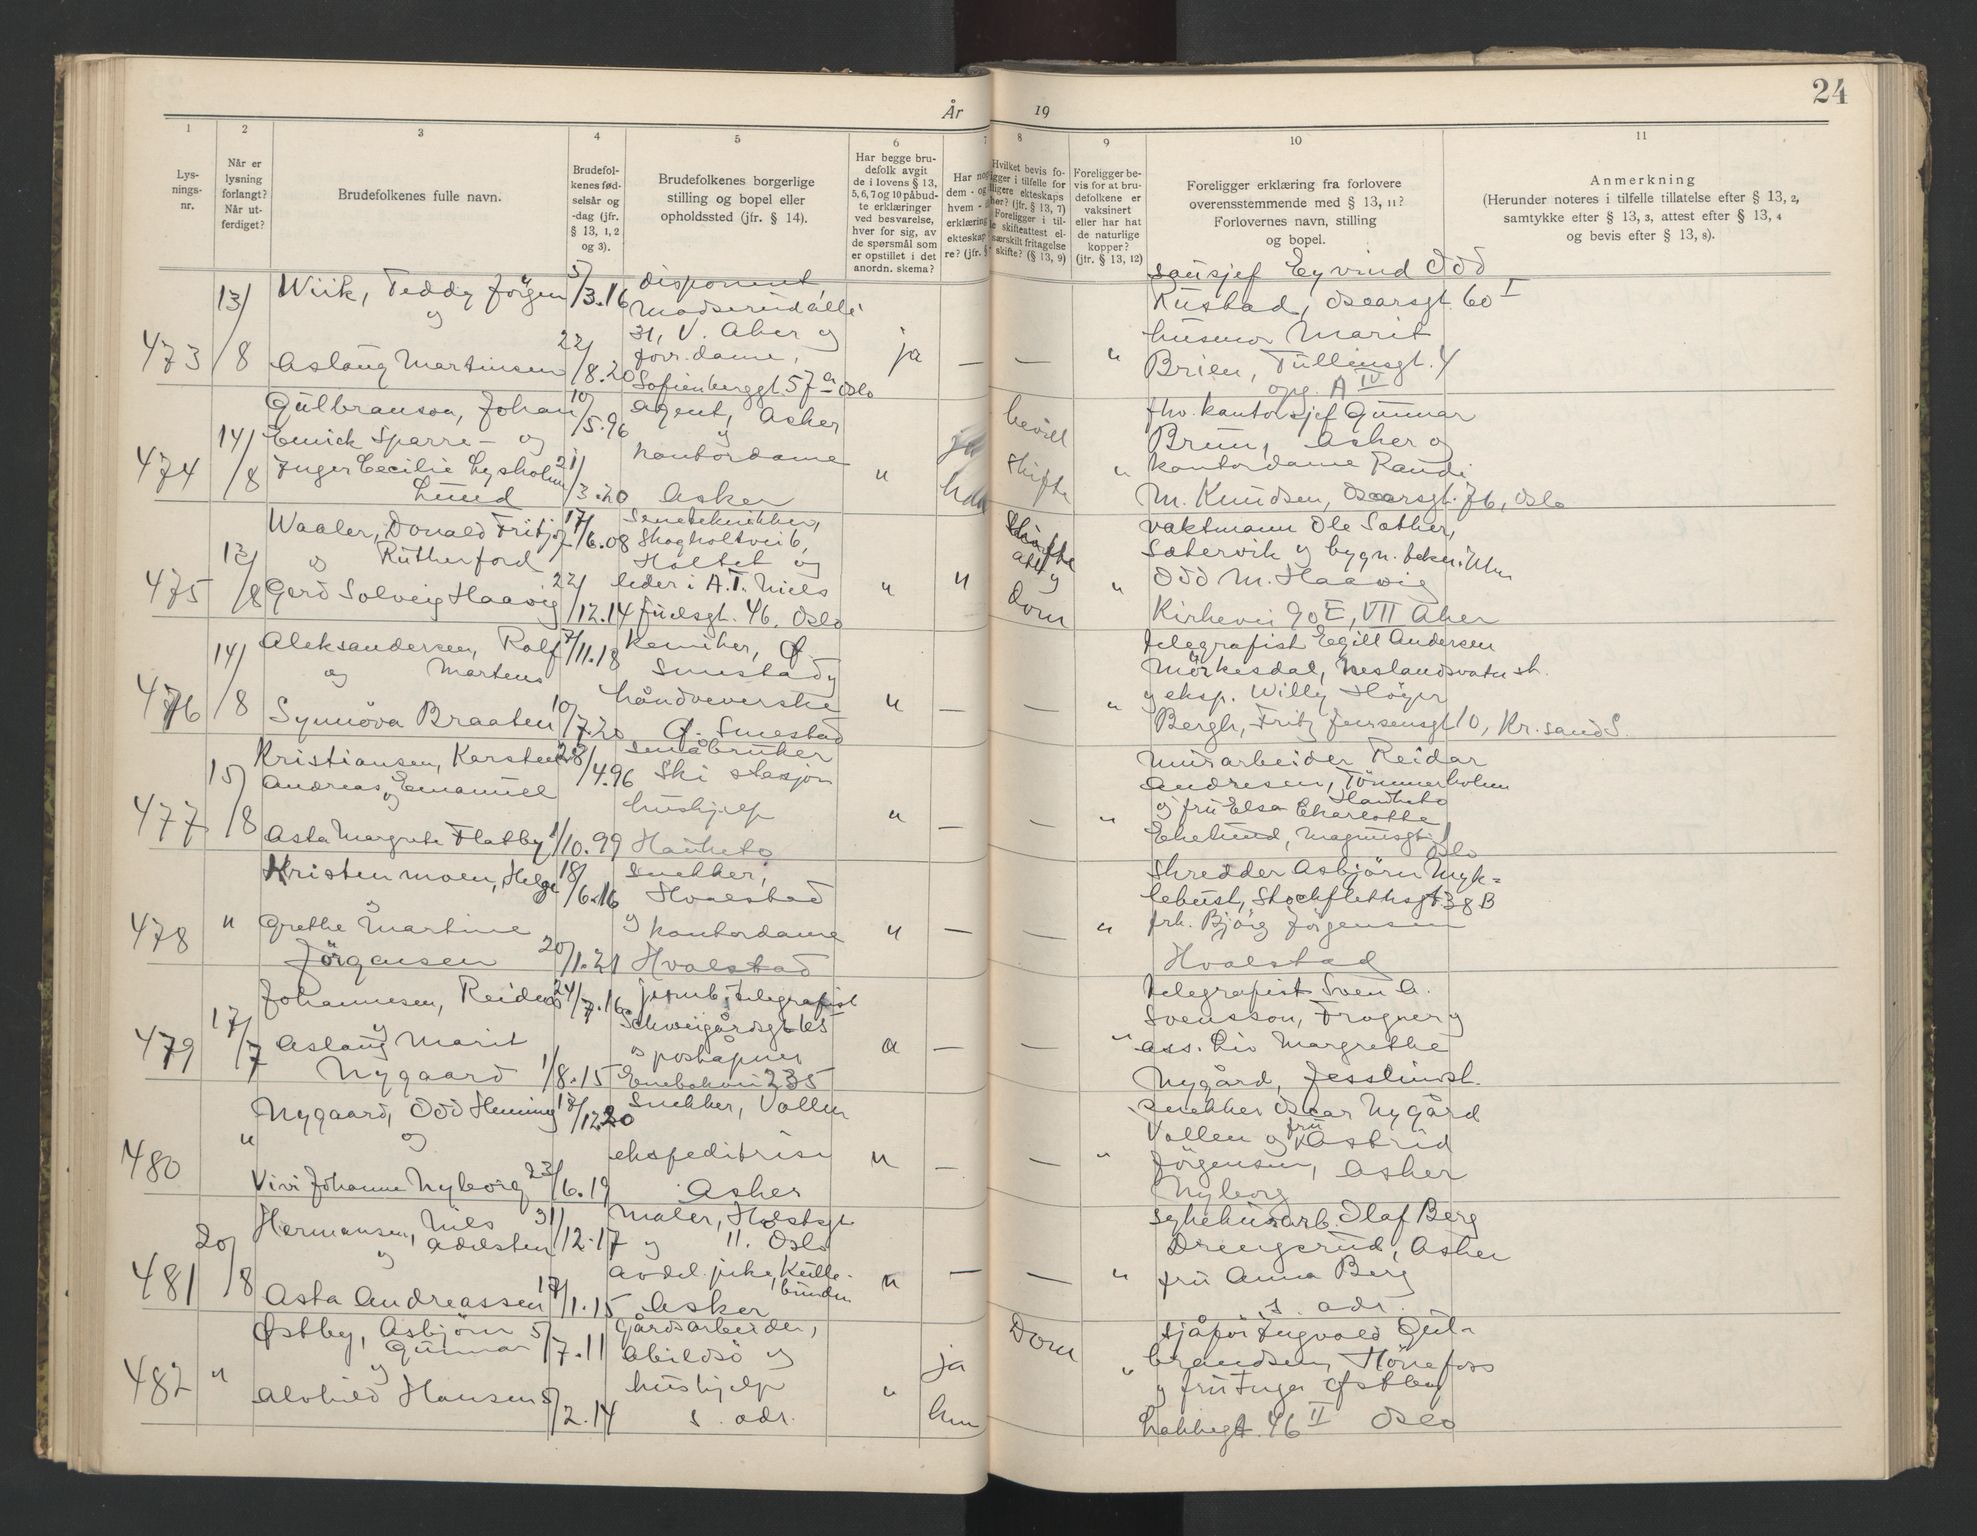 År 19
24
1 2 3 4 5 6 7 8 9 10 11
Lys-
nings-
nr.
Når er
lysning
forlangt?
Når ut-
ferdiget?
Brudefolkenes fulle navn.
Brudefol-
kenes fød-
selsår og
-dag (jfr.
§ 13, 1, 2
og 3).
Brudefolkenes borgerlige
stilling og bopel eller
opholdssted (jfr. § 14).
Har begge bru-
defolk avgit
de i lovens § 13,
5, 6, 7 og 10 påbud-
te erklæringer
ved besvarelse,
hver for sig, av
de spørsmål som
er opstillet i det
anordn. skema?
Har nog
dem - og
hvem -
erklæring
ekteskap
re? (jfr. §
Hvilket bevis fo-
igger i tilfelle for
ligere ekteskaps
hør? (jfr. § 13, 7)
Foreligger i til-
le skifteattest el-
særskilt fritagelse
skifte? (§ 13, 9)
Foreligger be-
vis for at bru-
defolkene er
vaksinert
eller har hat
de naturlige
kopper?
(jfr. § 13, 12)
Foreligger erklæring fra forlovere
overensstemmende med § 13, 11?
Forlovernes navn, stilling
og bopel.
Anmerkning
(Herunder noteres i tilfelle tillatelse efter § 13, 2,
samtykke efter § 13, 3, attest efter § 13, 4
og bevis efter § 13, 8).
473
13/8
Wiik, Teddy Jörgen
og
Aslaug Martinsen
5/3.16
22/8.20
disponent,
Madserud allé
31, V. Aker og
forr.dame,
Sofienberggt. 57a Oslo
ja — — "
Eyvind Odd
Rustad, Oscarsgt. 60 I
husmor Marit
Brien, Tullinsgt. 4
opg. A IV
474
14/8
Gulbranson, Johan
Emick Sparre - og
Inger Cecilie Lysholm
Lund
10/5.96
21/3.20
agent, Asker
og
kontordame
Asker
"
bevill
skifte
"
fhv. kontorsjef Gunnar
Brun, Asker og
kontordame Randi
M. Knudsen, Oscarsgt. 76, Oslo
475
13/8
Waaler, Donald Fritjof
og Rutherford
Gerd Solveig Haavig
17/6.08
22/12.14
Skogholtvei 6,
Holtet og
leder i A.T. Niels
Juelsgt. 46. Oslo
" "
skifte
att. og
Dom
"
vaktmann Ole Sæther,
Sætervik og bygn.
Odd M. Haavig
Kirkevei 90 E, VII Aker
476
14/8
Aleksandersen, Rolf
og Martens
Synnöva Braaten
7/11.18
10/7.20
Kemiker, Ø.
Smestad og
håndveverske
Ø. Smestad
" — — "
telegrafist Egill Andersen
Mörkesdal, Neslandsvatn st.
og eksp. Willy Höyer
Bergh, Fritz Jensensgt 10, Kr.sand S.
477
15/8
Kristiansen, Karsten
Andreas og Emanuel
Asta Margrete Flatby
28/4.96
1/10.99
småbruker
Ski stasjon
hushjelp
Hauketo
" — — "
murarbeider Reidar
Andresen, Tömmerholen
Hauketo
og fru Elsa Charlotte
Ekelund, Magnusgt. 1
Oslo
478
"
Kristenmoen, Helge
og
Grethe Martine
Jörgensen
18/6.16
20/1.21
snekker,
Hvalstad
og kontordame
Hvalstad
" — — "
Skredder Asbjörn Myk=
lebust, Stockflethsgt 38 B
frk. Bjørg Jörgensen
Hvalstad
479
17/7
Johannesen, Reidar
og
Aslaug Marit
Nygaard
24/7.16
1/8.15
jernb.telegrafist
Schweigårdsgt 65
og poståpner
Enebakvei 235
a — — "
telegrafist Sven A.
Svensson, Frogner og
ass. Liv Margrethe
Nygård, Jessheimst.
480
"
Nygaard, Odd Henning
og
Vivi Johanne Nyborg
18/12.20
23/6.19
Snekker, Vollen
ekspeditrise
Asker
" — — "
Snekker Oscar Nygård
Vollen og fru Astrid
Jörgensen, Asker
Nyborg
481
20/8
Hermansen, Nils
og Adelsten
Asta Andreassen
31/12.17
17/1.15
Maler, Holstsgt
og 11. Oslo
avdel.pike,
Asker
" — — "
sykehusarb. Olaf Berg
Drengsrud, Asker
fru Anna Berg
s. adr.
482
"
Østby, Asbjörn
og Gunnar
Alvhild Hansen
5/7.11
5/2.14
gårdsarbeider,
Abildsö og
hushjelp
s. adr.
"
ja
hun
Dom
"
sjåför Ingvald Gul-
brandsen, Hönefoss
og fru Inger Østby
Lakkegt. 46 II Oslo